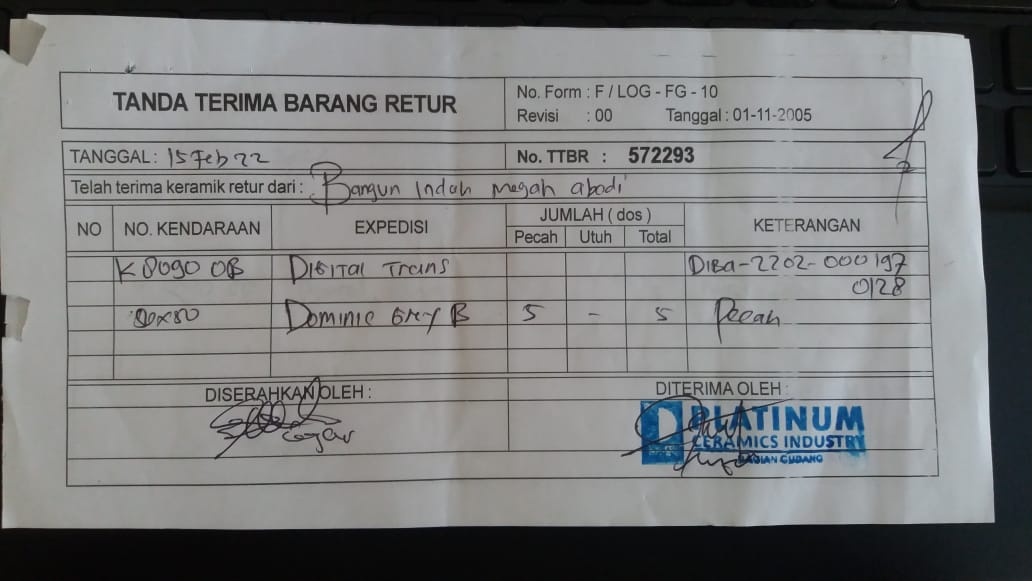 TANDA TERIMA BARANG RETUR
No. Form : F / LOG - FG - 10
Revisi : 00 Tanggal : 01-11-2005
TANGGAL : 15 Feb 22
No. TTBR : 572293
Telah terima keramik retur dari : Bangun Indah megah abadi
NO NO. KENDARAAN EXPEDISI JUMLAH ( dos ) KETERANGAN
Pecah Utuh Total
K 8090 OB DIGITAL Trans DIBA-2202-000197
0128
80x80 Dominic Grey B 5 - 5 Pecah
DISERAHKAN OLEH : DITERIMA OLEH :
PLATINUM
CERAMICS INDUSTRY
BAGIAN GUDANG